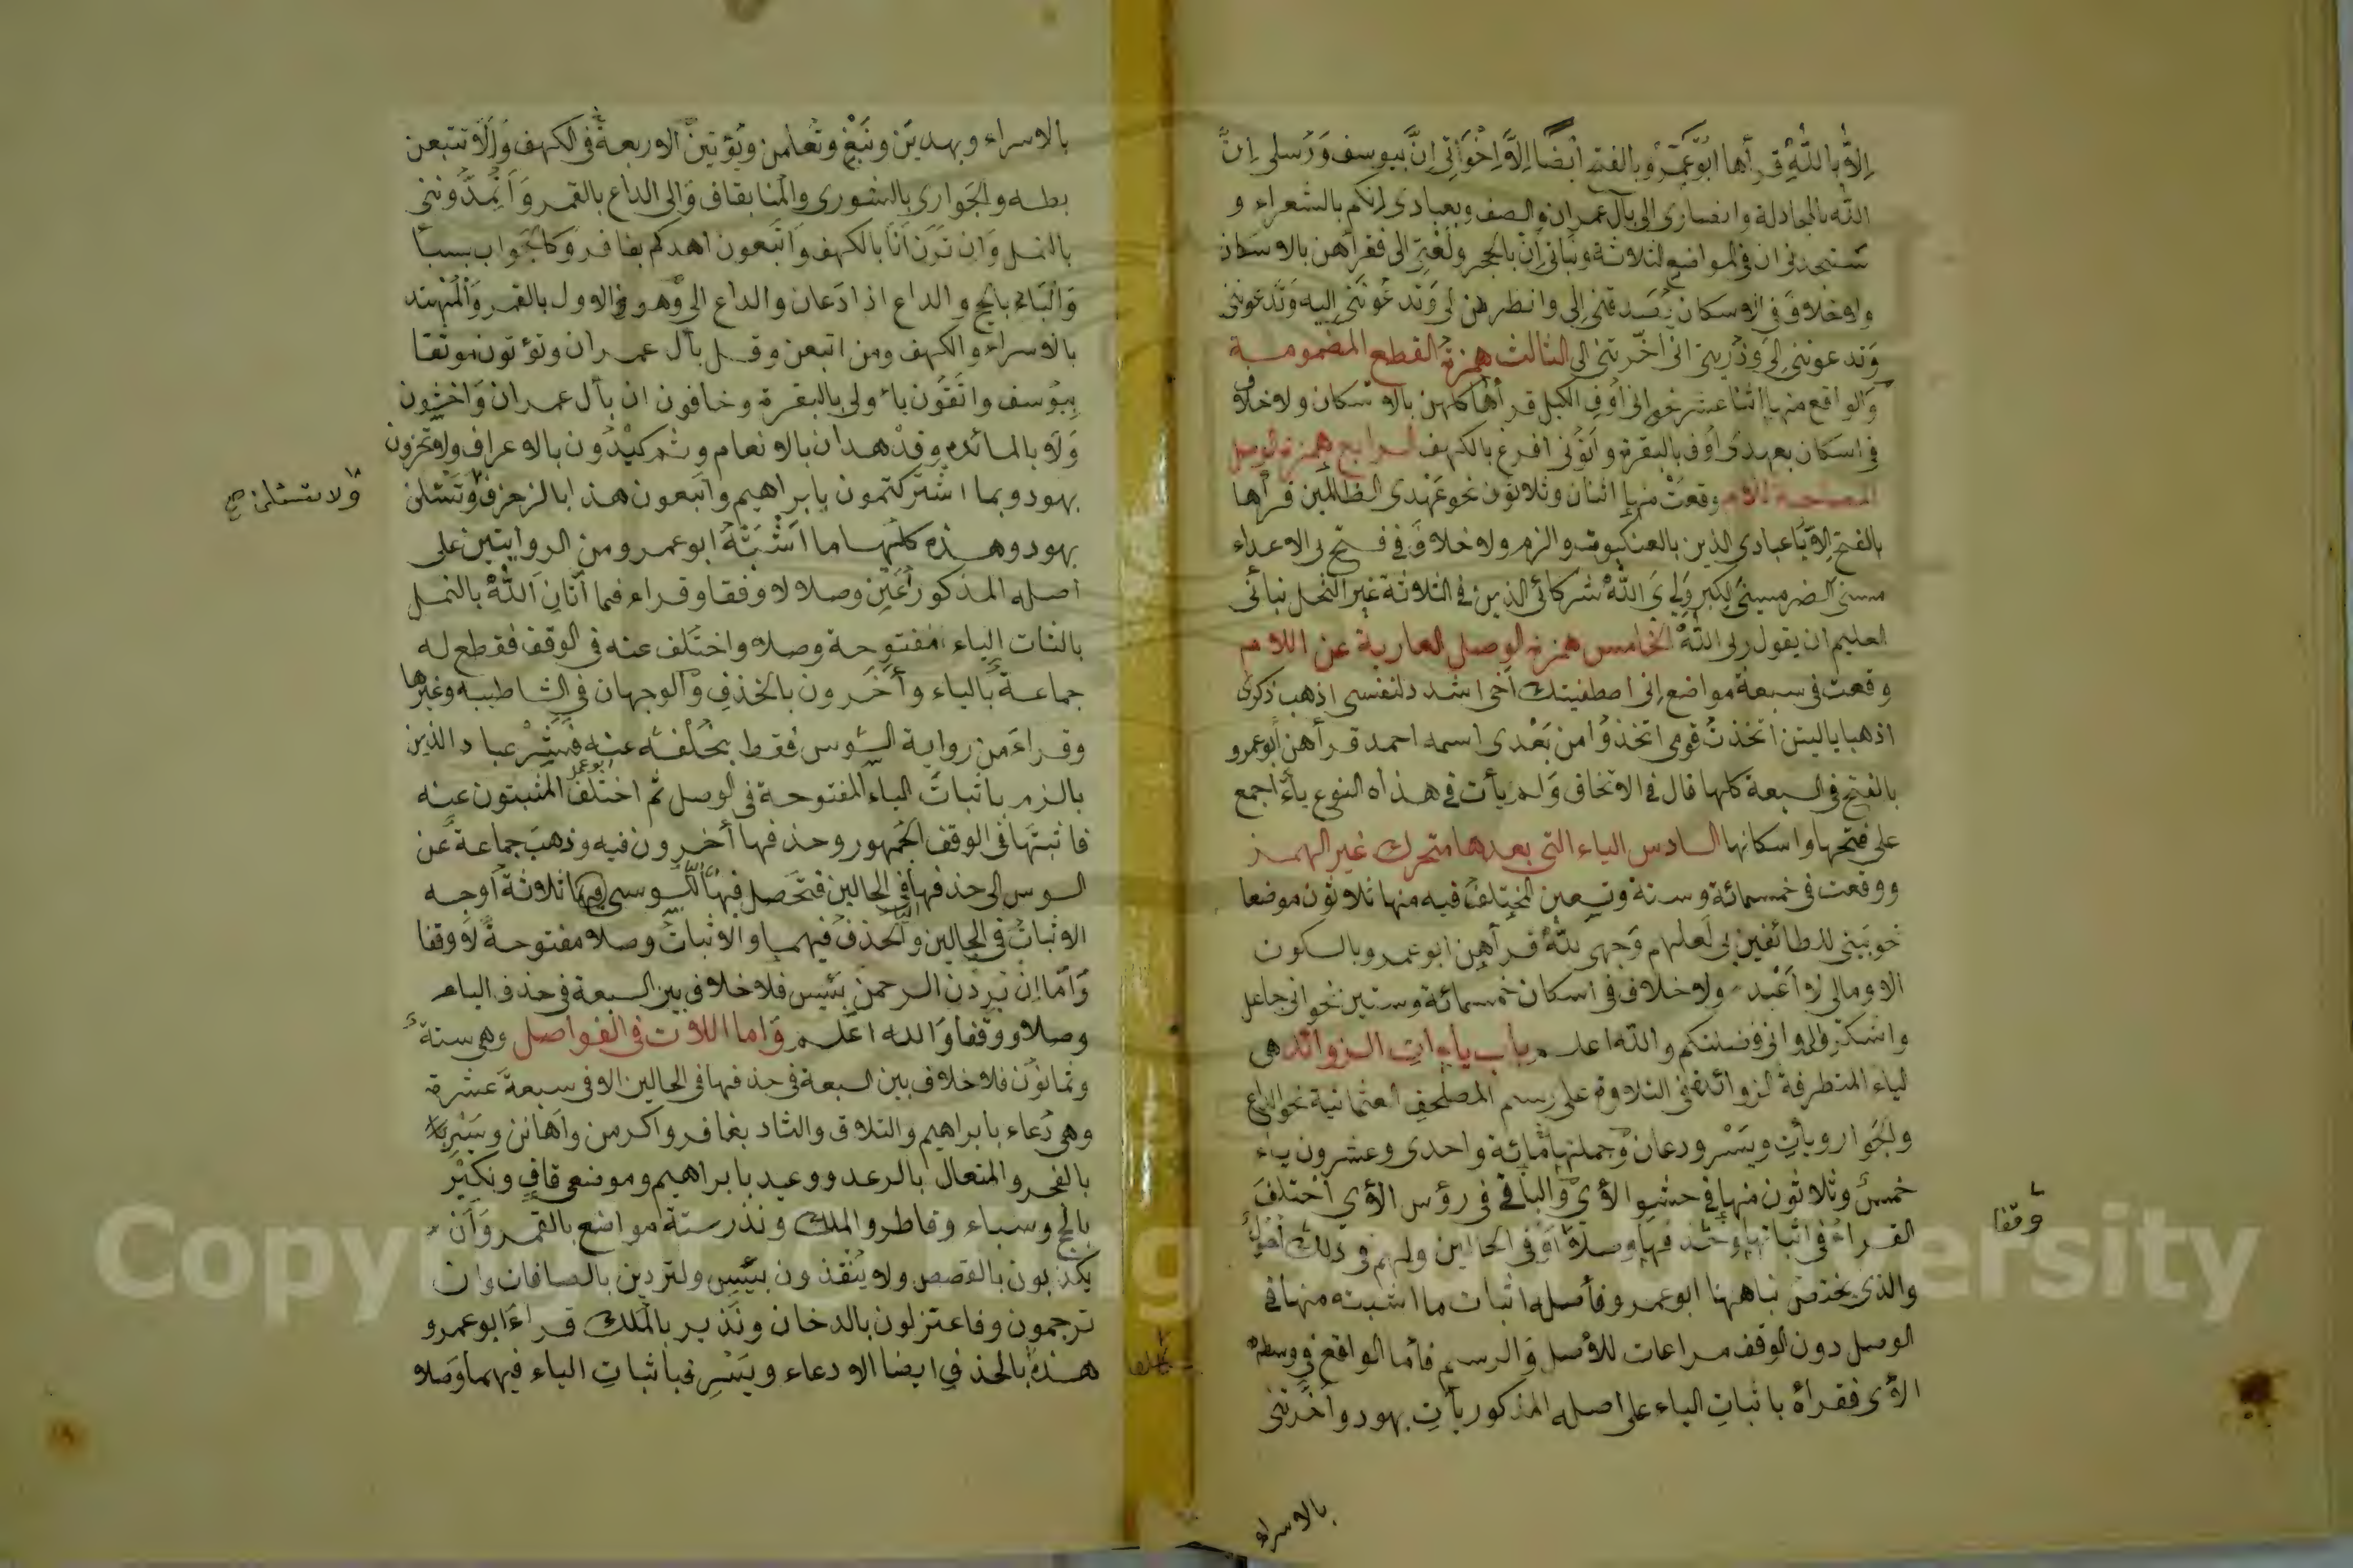 الا بالله قرأها ابو عمرو بالفتح أيضا الا اخوتي ان بيوسف ورسلي ان
الله بالمجادلة وانصاري الى بآل عمران والصف وبعبادي انكم بالشعراء و
ستجدني ان في المواضع الثلاثة وبناتي ان بالحجر ولعنتي الى فقرأهن بالاسكان
ولا خلاف في الاسكان يصدقني اني وانظرهن لي وتدعونني اليه وتدعونني
وتدعونني الي وذريتي اني اخرتني الى الثالث همزة القطع المضمومة
والواقع منها اثنا عشر نحو اني أوف الكيل قرأها كلهن بالاسكان ولا خلاف
في اسكان بعهدي أوف بالبقرة وآتوني افرغ بالكهف الرابع همزة الوصل
المصاحبة للام وقعت منها اثنان وثلاثون نحو عهدي الظالمين قرأها
بالفتح الا يا عبادي الذين بالعنكبوت والزمر ولا خلاف في فتح بي الاعداء
مسني الضر مسني الكبر ولي ي الله شركائي الذين في الثلاثة غير النحل نبأني
العليم ان يقول ربي الله الخامس همزة الوصل العارية عن اللام
وقعت في سبعة مواضع اني اصطفيتك اخي اشدد لنفسي اذهب ذكري
اذهبا يا ليتني اتخذت قومي اتخذوا من بعدي اسمه احمد قرأهن ابو عمرو
بالفتح في السبعة كلها قال في الاتحاف ولم يأت في هذا النوع ياء أجمع
على فتحها واسكانها السادس الياء التي بعدها متحرك غير الهمز
ووقعت في خمسمائة وستة وتسعين المختلف فيه منها ثلاثون موضعا
نحو بيتي للطائفين بي لعلهم وجهي لله قرأهن ابو عمرو بالسكون
الا ومالي لا أعبد ولا خلاف في اسكان خمسمائة وستين نحو اني جاعل
واشكروا لي واني فضلتكم والله اعلم باب ياءات الزوائد هي
الياء المتطرفة الزوائد في التلاوة على رسم المصاحف العثمانية نحو الداع
والجوار ويأت ويسر ودعان وجملتها مائة واحدى وعشرون ياء
خمس وثلاثون منها في حشو الآي والباقي في رؤس الآي اختلف
القراء في اثباتها وحذفها وصلا أو في الحالين ولهم في ذلك أصول
وقفا
والذي يختص بنا ههنا ابو عمرو فأصله اثبات ما اثبته منها في
الوصل دون الوقف مراعات للأصل والرسم فأما الواقع في وسط
الآي فقرأه باثبات الياء على اصله المذكور يأت بهود وأخرتني
بالاسراء
بالاسراء ويهدين ونبغ وتعلمن ويؤتين الاربعة في الكهف والا تتبعن
بطه والجواري بالشورى والمنا بقاف والى الداع بالقمر وأتمدونني
بالنمل وان ترن انا بالكهف واتبعون اهدكم بغافر وكالجواب بسبأ
والباد بالحج والداع اذا دعان والداع الى وهو في الاول بالقمر والمهتد
بالاسراء والكهف ومن اتبعن وقل بآل عمران وتؤتون موثقا
بيوسف واتقون يا اولي بالبقرة وخافون ان بآل عمران واخشون
ولا بالمائدة وقد هدان بالانعام وثم كيدون بالاعراف ولا تخزون
بهود وبما اشركتمون بابراهيم واتبعون هذا بالزخرف وتسئلن
ولا تسئلن صح
بهود وهذه كلها ما اثبته ابو عمرو من الروايتين على
اصله المذكور أعني وصلا لا وقفا وقراء فما آتان الله بالنمل
باثبات الياء مفتوحة وصلا واختلف عنه في الوقف فقطع له
جماعة بالياء وأخرون بالحذف والوجهان في الشاطبية وغيرها
وقراء من رواية السوس فقط بخلف عنه فبشر عباد الذين
بالزمر باثبات الياء المفتوحة في الوصل ثم اختلف المثبتون عنه
ابو عمرو
فاثبتها في الوقف الجمهور وحذفها أخرون فيه وذهب جماعة عن
السوس الى حذفها في الحالين فتحصل فيها للسوسي فيها ثلاثة أوجه
الاثبات في الحالين والحذف فيهما والاثبات وصلا مفتوحة لا وقفا
وأما ان يردن الرحمن بيس فلا خلاف بين السبعة في حذف الياء
وصلا ووقفا والله اعلم وأما اللات في الفواصل وهي ستة
وثمانون فلا خلاف بين السبعة في حذفها في الحالين الا في سبعة عشرة
وهي دعاء بابراهيم والتلاق والتناد بغافر واكرمن واهانن ويسر
بالفجر والمتعال بالرعد ووعيد بابراهيم وموضعي قاف ونكير
بالحج وسباء وفاطر والملك ونذر ستة مواضع بالقمر وأن
يكذبون بالقصص ولا ينقذون بيس ولتردين بالصافات وان
ترجمون وفاعتزلون بالدخان ونذير بالملك قراء ابو عمرو
هذه بالحذف ايضا الا دعاء ويسر فباثبات الياء فيهما وصلا
Copyright © King University